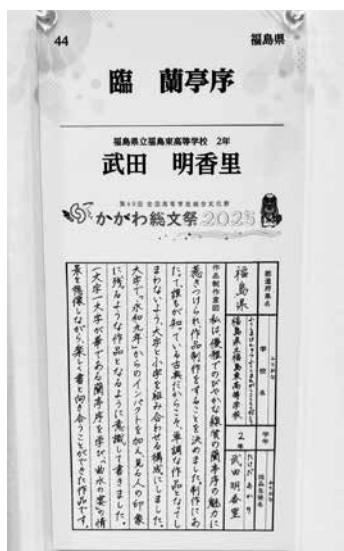 44
福島県
臨 蘭亭序
福島県立福島東高等学校 2年
武田 明香里
第49回全国高等学校総合文化祭
かがわ総文祭2025
都道府県名
福島県
学校名
ふりがな
ふくしまけんりつふくしまひがしこうとうがっこう
福島県立福島東高等学校
学年
2年
ふりがな
出品生徒名
たけだ あかり
武田明香里
作品制作意図 私は、優雅でのびやかな線質の蘭亭序の魅力に
惹きつけられ作品制作をすることを決めました。制作にあ
たって、誰もが知っている古典だからこそ、単調な作品となってし
まわないよう大字と小字を組み合わせる構成にしました。
大字で、永和九年からのインパクトを加え、見る人の印象
に残るような作品となるように意識して書きました。
一文字一文字が華である蘭亭序を学び、曲水の宴の情
景を想像しながら、楽しく書と向き合うことができた作品です。